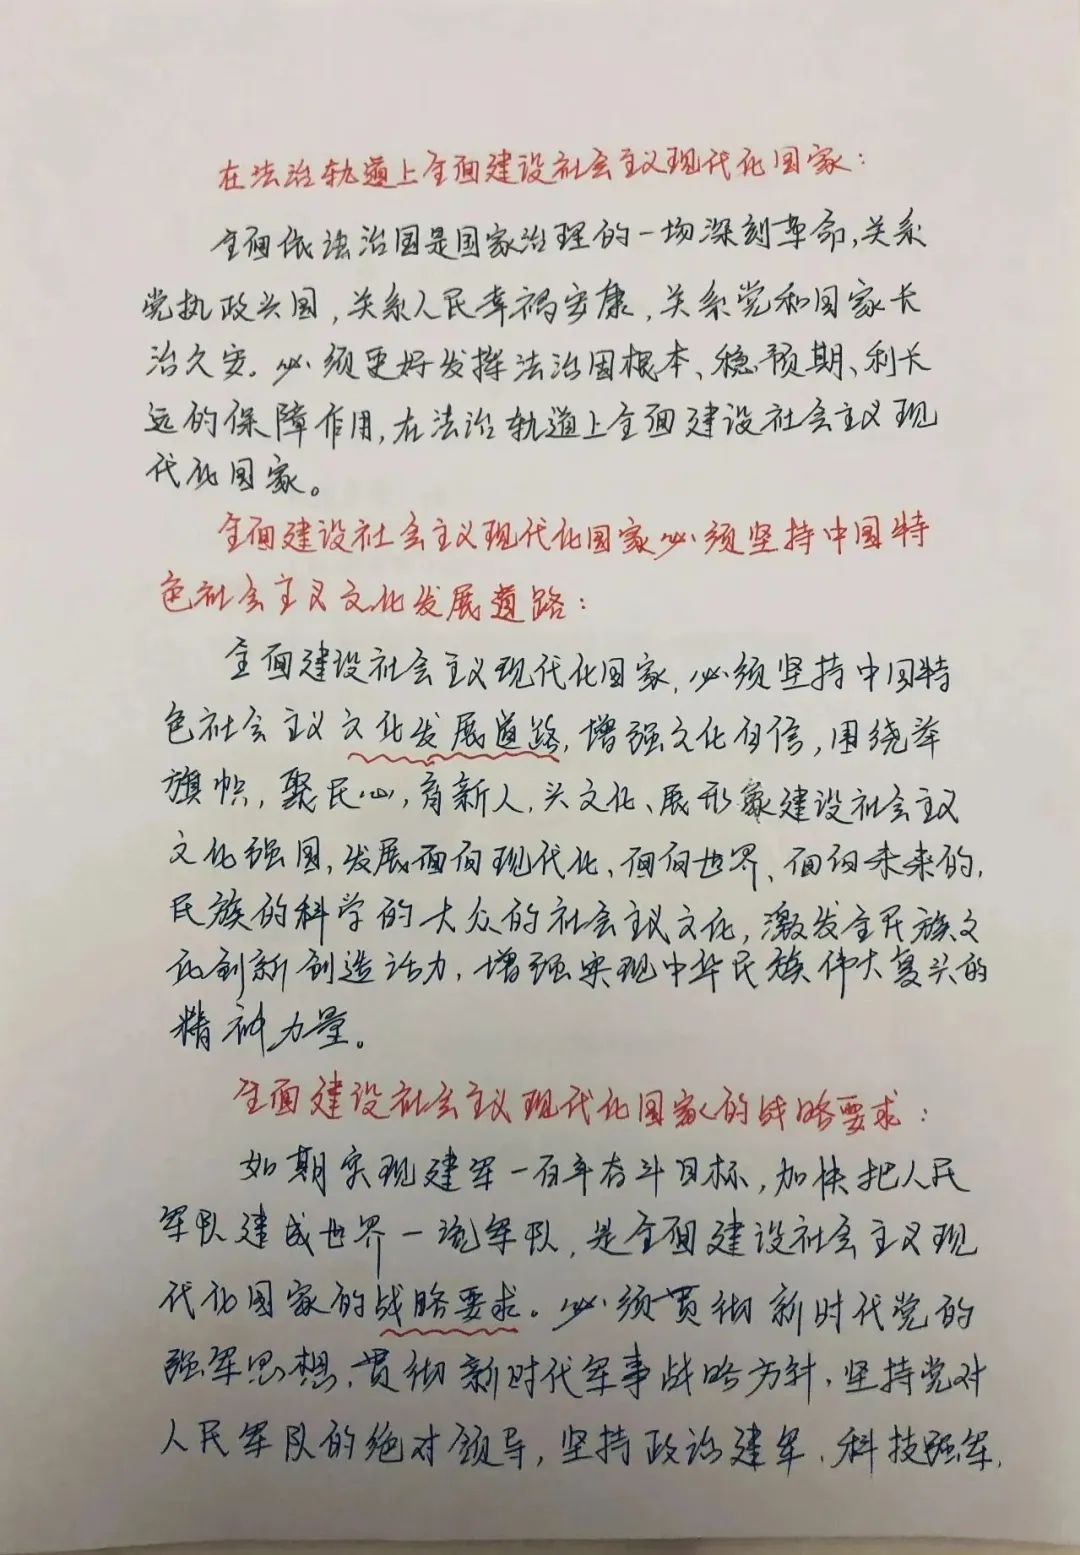 在法治轨道上全面建设社会主义现代化国家：
全面依法治国是国家治理的一场深刻革命，关系
党执政兴国，关系人民幸福安康，关系党和国家长
治久安。必须更好发挥法治固根本、稳预期、利长
远的保障作用，在法治轨道上全面建设社会主义现
代化国家。
全面建设社会主义现代化国家必须坚持中国特
色社会主义文化发展道路：
全面建设社会主义现代化国家，必须坚持中国特
色社会主义文化发展道路，增强文化自信，围绕举
旗帜，聚民心，育新人，兴文化、展形象建设社会主义
文化强国，发展面向现代化、面向世界、面向未来的，
民族的科学的大众的社会主义文化，激发全民族文
化创新创造活力，增强实现中华民族伟大复兴的
精神力量。
全面建设社会主义现代化国家的战略要求：
如期实现建军一百年奋斗目标，加快把人民
军队建成世界一流军队，是全面建设社会主义现
代化国家的战略要求。必须贯彻新时代党的
强军思想，贯彻新时代军事战略方针，坚持党对
人民军队的绝对领导，坚持政治建军、科技强军，